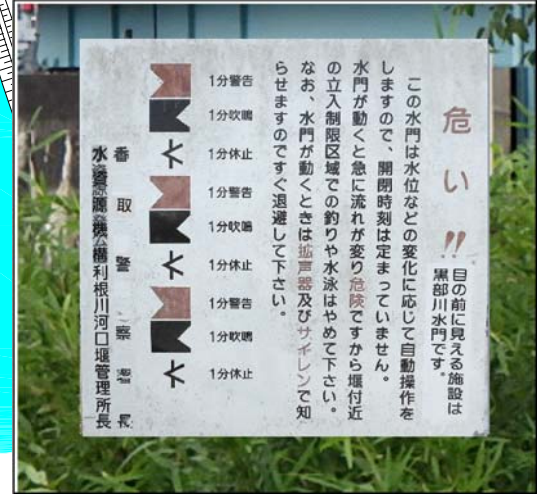 危い!!
目の前に見える施設は
黒部川水門です。
この水門は水位などの変化に応じて自動操作を
しますので、開閉時刻は定まっていません。
水門が動くと急に流れが変り危険ですから堰付近
の立入制限区域での釣りや水泳はやめて下さい。
なお、水門が動くときは拡声器及びサイレンで知
らせますのですぐ退避して下さい。
1分警告
1分吹鳴
1分休止
1分警告
1分吹鳴
1分休止
1分警告
1分吹鳴
1分休止
香取警察署長
水資源機構利根川河口堰管理所長